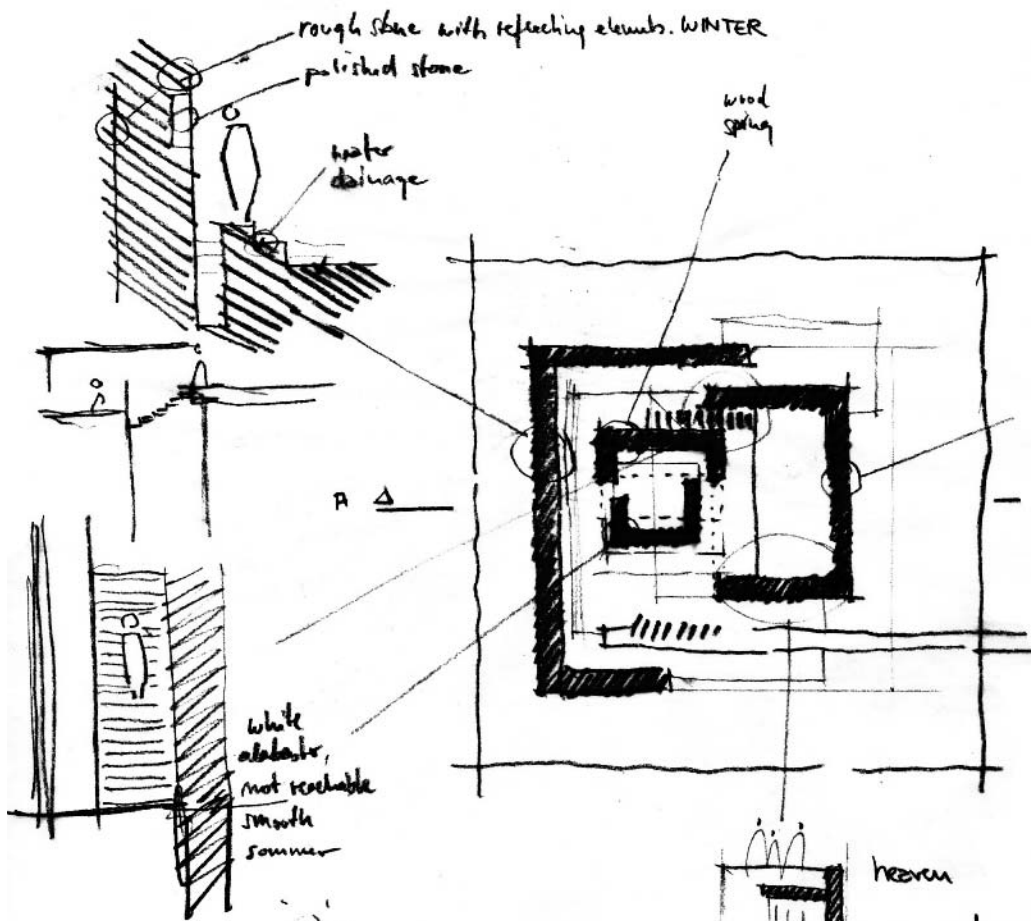 rough stone with reflecting elements. WINTER
polished stone
water
dainage
wood
spring
A
white
alabaster,
not reachable
smooth
sommer
heaven